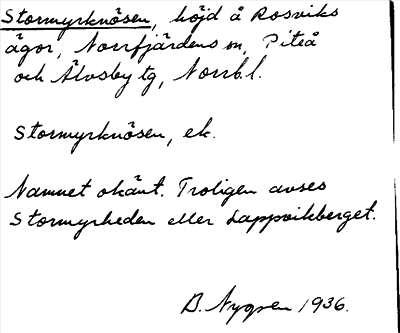 Stormyrknösen, höjd å Rosviks
ägor, Norrfjärdens sn, Piteå
och Älvsby tg, Norrb.l.
Stormyrknösen, ek.
Namnet okänt. Troligen avses
Stormyrheden eller Lappvikberget.
B. Nygren 1936.